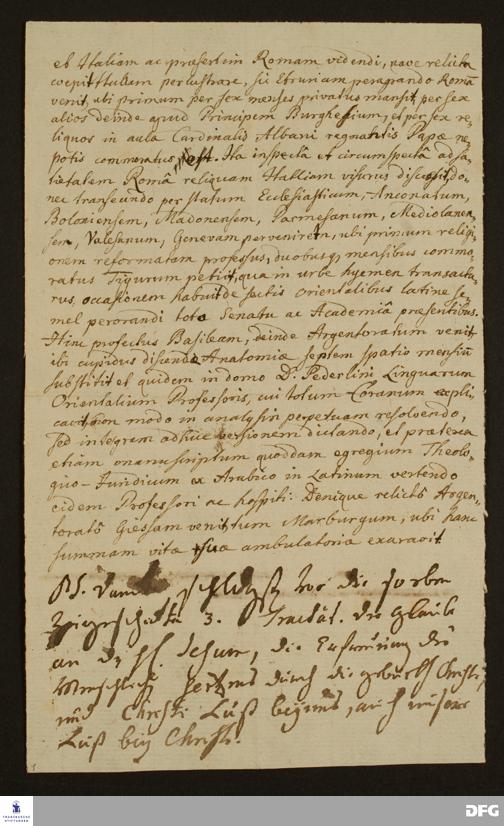 et Italiam ac præsertim Romam videndi, nave relicta
coepit Italiam perlustrare, sic Etruriam peragrando Romã
venit, ubi primum per sex menses privatus mansit, per sex
alios deinde apud Principem Burghesium, et per sex re-
liquos in aula Cardinalis Albani regnantis Papæ ne-
potis commoratus est. Ita inspectâ et circumspectâ ad sa-
tietatem Româ reliquam Italiam visurus discessit, do-
nec transeundo per statum Ecclesiasticum, Anconatum,
Boloniensem, Madonensem, Parmesanum, Mediolanen-
sem, Valesanum, Genevam perveniret, ubi primum religi-
onem reformatam professus, duobusq mensibus commo-
ratus Tigurum petiit, qua in urbe hyemen transactu-
rus, occasionem habuit de sectis orientalibus latine se-
mel perorandi toto Senatu ac Academiâ præsentibus.
Hinc profectus Basileam, deinde Argentoratum venit,
ibi cupidus discendæ Anatomiæ septem spatio mensiũ
substitit et quidem in domo D. Pederlini Linguarum
Orientalium Professoris, cui totum Coranum expli-
cavit, non modo in analysin perpetuam resolvendo,
sed integram adhuc versionem dictando, et præterea
etiam manuscriptum quoddam egregium Theolo-
guo-Juridicum ex Arabico in Latinum vertendo
eidem Professori ac hospiti: Denique relictô Argen-
toratô Giessam venit, tum Marburgum, ubi hanc
summam vitæ suæ ambulatoriæ exaravit.
PS. die
3. Tractät. der glaub
an die die
durch die geburth Christi,
und Christi Lust bey uns, auch unsere
Lust bey Christo.
DFG